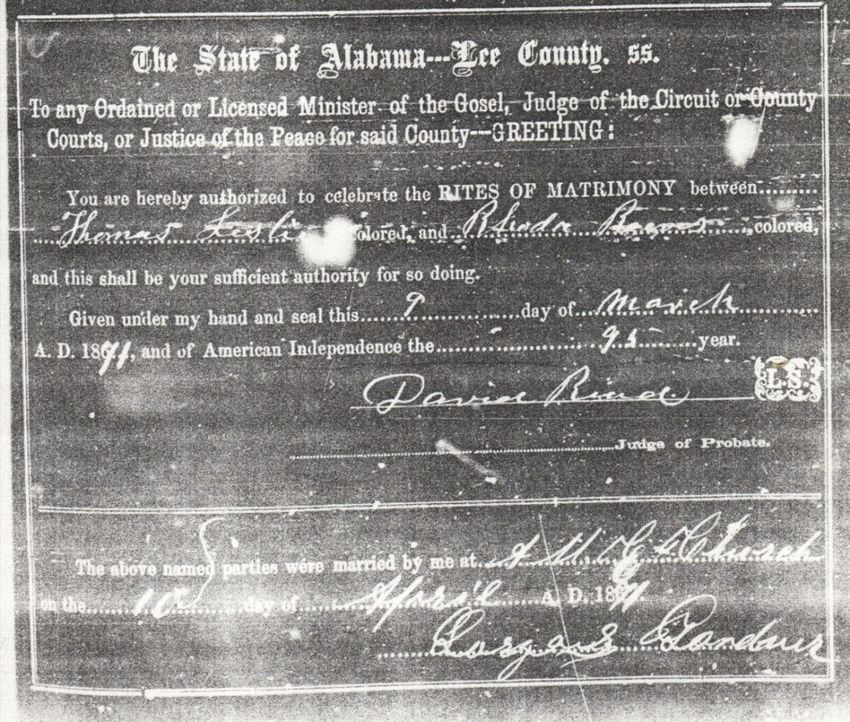 The State of Alabama---Lee County. ss.
To any Ordained or Licensed Minister of the Gosel, Judge of the Circuit or County
Courts, or Justice of the Peace for said County--GREETING:
You are hereby authorized to celebrate the RITES OF MATRIMONY between
Thomas olored, and Rhoda , colored,
and this shall be your sufficient authority for so doing.
Given under my hand and seal this 9 day of March
A. D. 1871, and of American Independence the 95 year.
David
L.S.
Judge of Probate.
The above named parties were married by me at A M E Church
on the 10 day of April A. D. 1871
Gardner